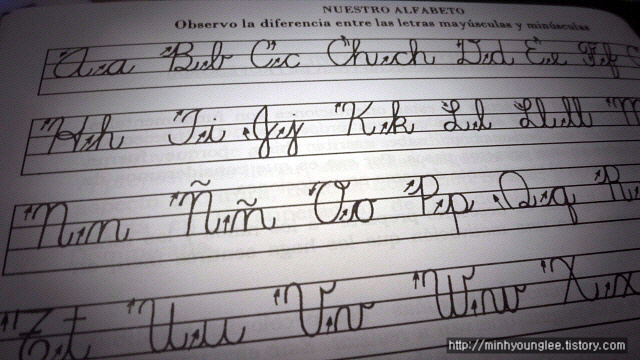 NUESTRO ALFABETO
Observo la diferencia entre las letras mayúsculas y minúsculas
A a B b C c Ch ch D d E e F f
H h I i J j K k L l Ll ll
N n Ñ ñ O o P p Q q R
T t U u V v W w X x
http://minhyounglee.tistory.com